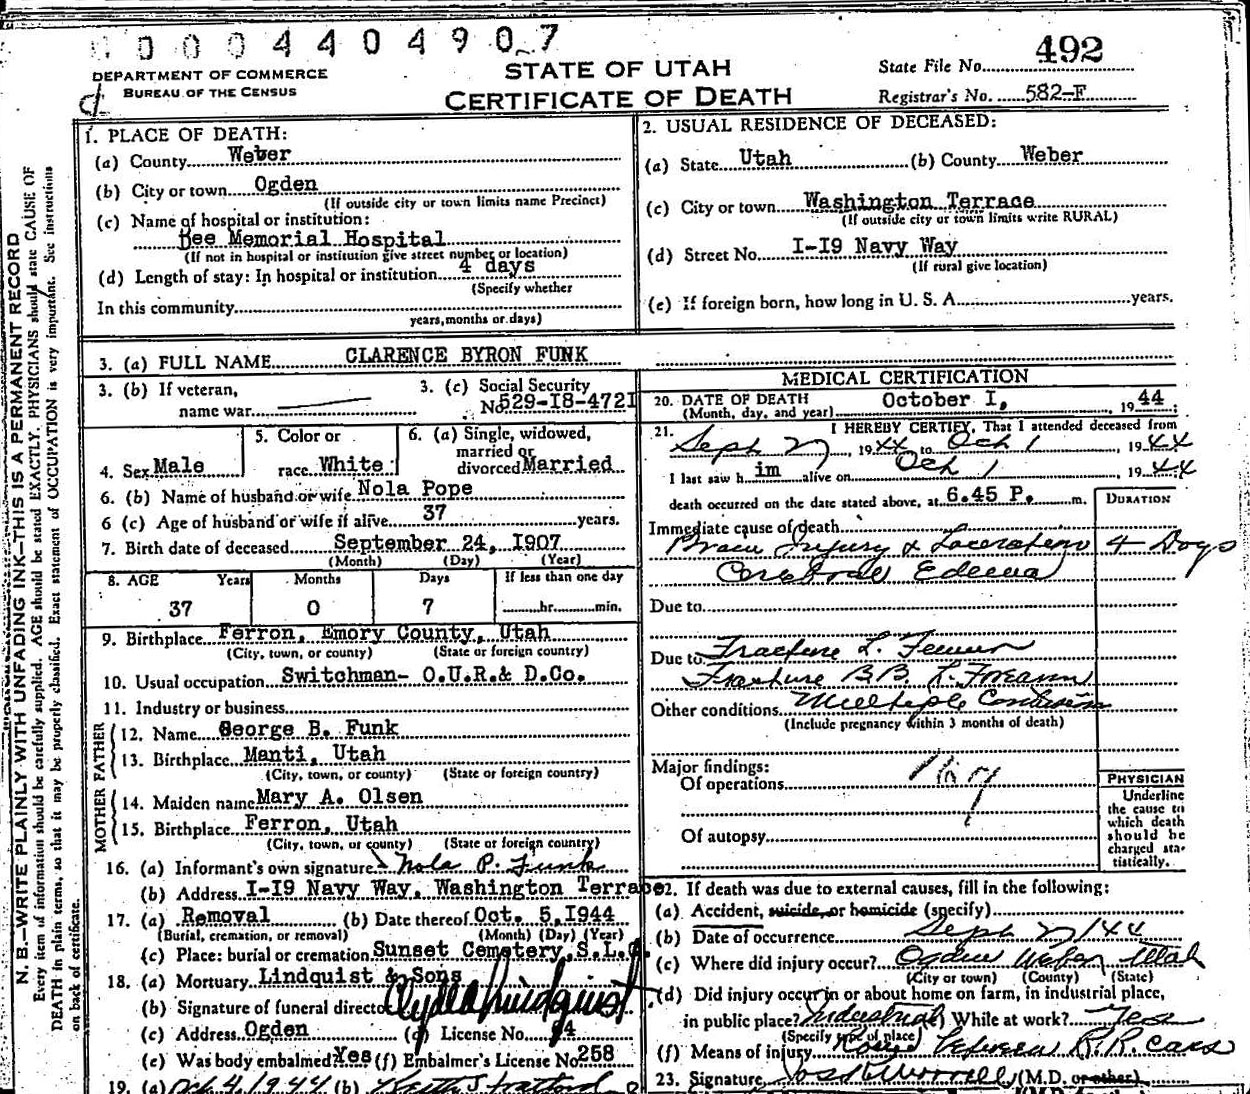 0004404907
DEPARTMENT OF COMMERCE
BUREAU OF THE CENSUS
d
STATE OF UTAH
CERTIFICATE OF DEATH
State File No. 492
Registrar's No. 582-F
N. B.—WRITE PLAINLY WITH UNFADING INK—THIS IS A PERMANENT RECORD
Every item of information should be carefully supplied. AGE should be stated EXACTLY. PHYSICIANS should state CAUSE OF
DEATH in plain terms, so that it may be properly classified. Exact statement of OCCUPATION is very important. See instructions
on back of certificate.
1. PLACE OF DEATH:
(a) County Weber
(b) City or town Ogden
(If outside city or town limits name Precinct)
(c) Name of hospital or institution:
Dee Memorial Hospital
(If not in hospital or institution give street number or location)
(d) Length of stay: In hospital or institution 4 days
(Specify whether
In this community
years, months or days)
2. USUAL RESIDENCE OF DECEASED:
(a) State Utah (b) County Weber
(c) City or town Washington Terrace
(If outside city or town limits write RURAL)
(d) Street No. I-I9 Navy Way
(If rural give location)
(e) If foreign born, how long in U. S. A. years.
3. (a) FULL NAME CLARENCE BYRON FUNK
3. (b) If veteran,
name war
3. (c) Social Security
No. 529-I8-472I
4. Sex Male
5. Color or
race White
6. (a) Single, widowed,
married or
divorced Married
6. (b) Name of husband or wife Nola Pope
6 (c) Age of husband or wife if alive 37 years.
7. Birth date of deceased September 24, I907
(Month) (Day) (Year)
8. AGE Years Months Days If less than one day
37 0 7 hr. min.
9. Birthplace Ferron, Emory County, Utah
(City, town, or county) (State or foreign country)
10. Usual occupation Switchman- O.U.R.& D.Co.
11. Industry or business
FATHER
12. Name George B. Funk
13. Birthplace Manti, Utah
(City, town, or county) (State or foreign country)
MOTHER
14. Maiden name Mary A. Olsen
15. Birthplace Ferron, Utah
(City, town, or county) (State or foreign country)
16. (a) Informant's own signature Nola P. Funk
(b) Address I-I9 Navy Way, Washington Terrace
17. (a) Removal (b) Date thereof Oct. 5, I944
(Burial, cremation, or removal) (Month) (Day) (Year)
(c) Place: burial or cremation Sunset Cemetery, S.L.
18. (a) Mortuary Lindquist & Sons
(b) Signature of funeral director Clyde Lindquist
(c) Address Ogden (d) License No. 84
(e) Was body embalmed Yes (f) Embalmer's License No. 258
19. (a) Oct 4, 1944 (b) Keith Stratford
MEDICAL CERTIFICATION
20. DATE OF DEATH October I, 19 44
(Month, day, and year)
21. I HEREBY CERTIFY, That I attended deceased from
Sept 27, 19 44 to Oct 1, 19 44
I last saw h im alive on Oct 1, 19 44
death occurred on the date stated above, at 6.45 P. m.
DURATION
Immediate cause of death
Brain Injury & Laceration 4 Days
Cerebral Edema
Due to
Due to Fracture L. Femur
Fracture B B L. Forearm
Other conditions Multiple Contusions
(Include pregnancy within 3 months of death)
Major findings:
Of operations
Of autopsy
PHYSICIAN
Underline
the cause to
which death
should be
charged sta-
tistically.
22. If death was due to external causes, fill in the following:
(a) Accident, suicide, or homicide (specify)
(b) Date of occurrence Sept 27/44
(c) Where did injury occur? Ogden Weber Utah
(City or town) (County) (State)
(d) Did injury occur in or about home on farm, in industrial place,
in public place? Industrial (e) While at work? Yes
(Specify type of place)
(f) Means of injury between R.R. cars
23. Signature (M.D. or other)